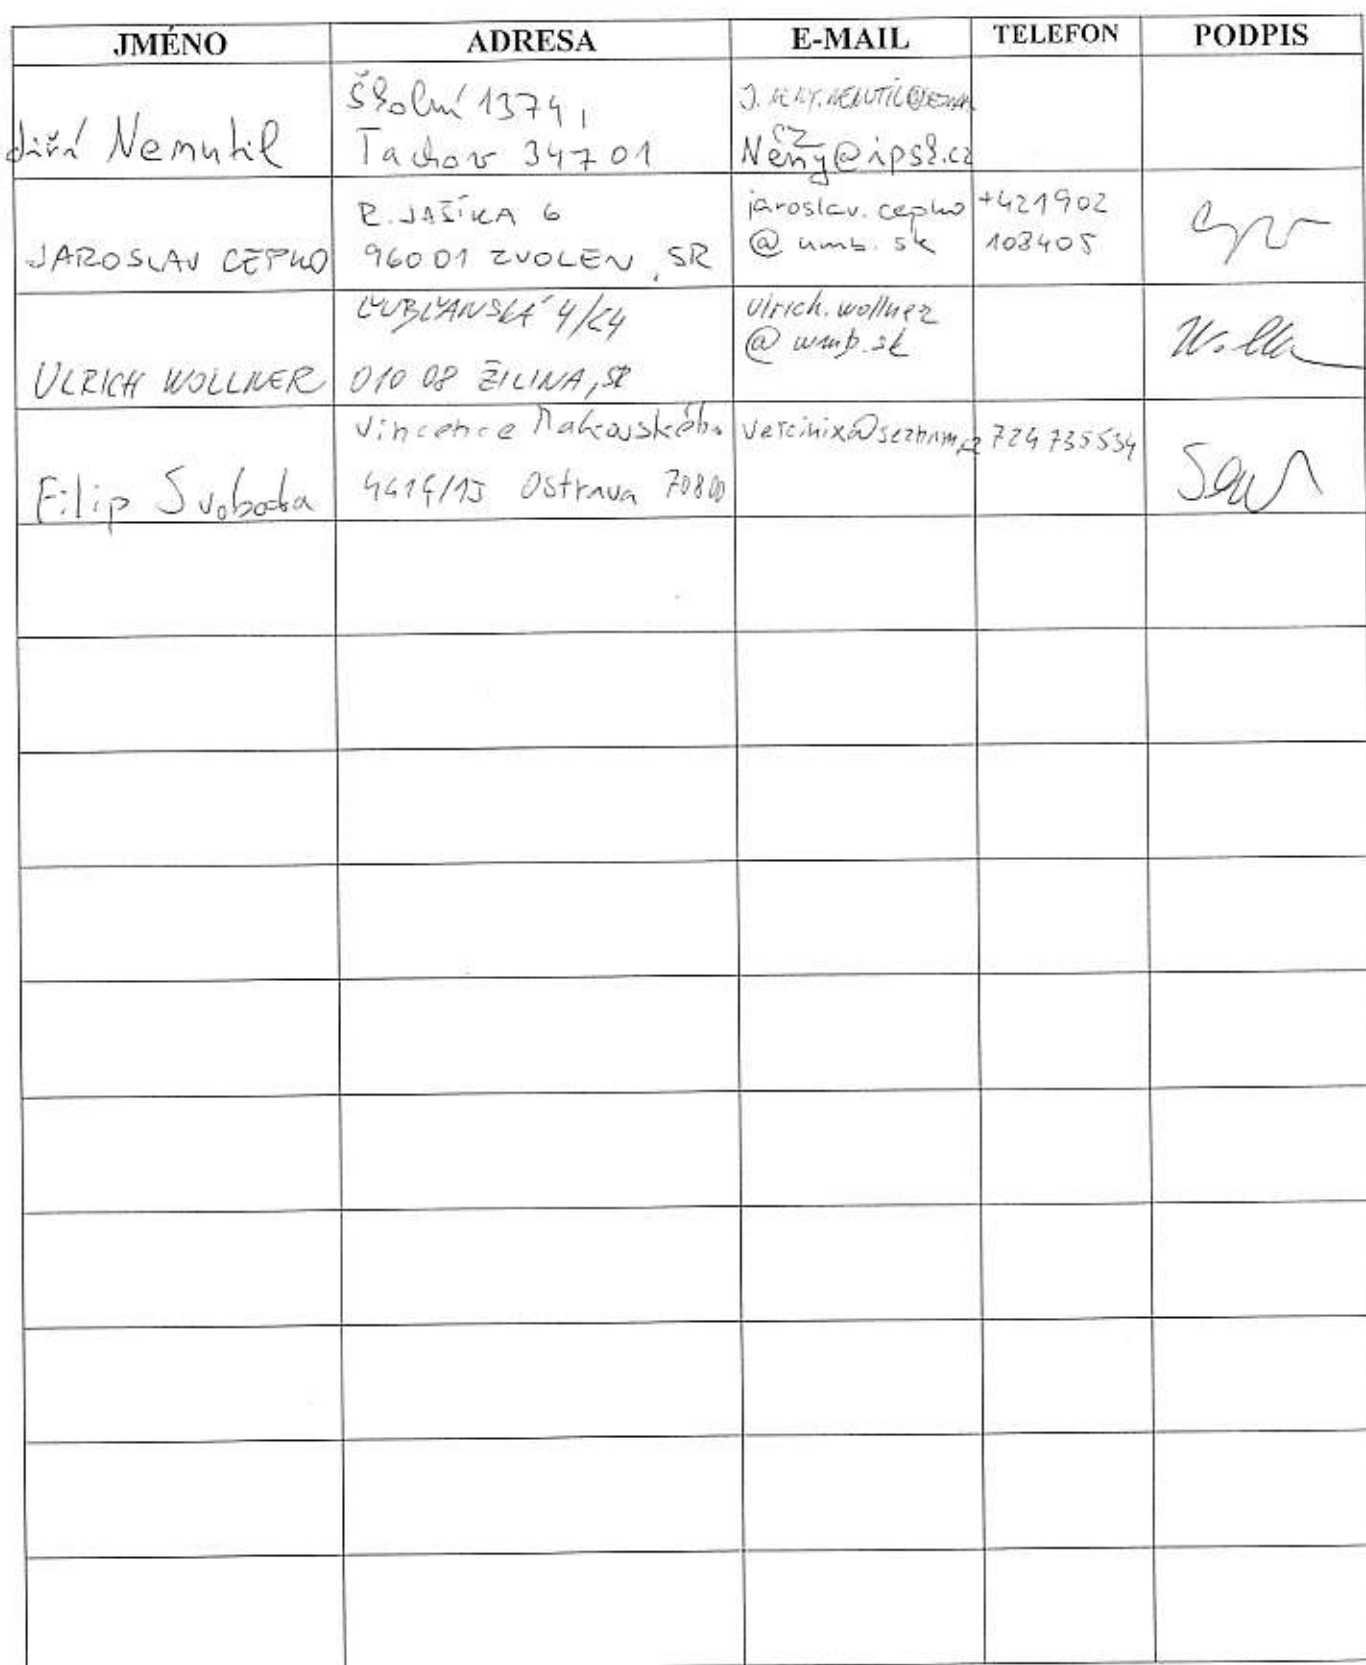 JMÉNO ADRESA E-MAIL TELEFON PODPIS
Jiří Nemutil
Školní 1374,
Tachov 34701
CZ
Neny@ips2.cz
JAROSLAV CEPKO
R. JAŠÍKA 6
96001 ZVOLEN, SR
jaroslav.cepko
@umb.sk
+421902
103405
ULRICH WOLLNER
ĽUBĽANSKÁ 4/24
010 08 ŽILINA, SR
ulrich.wollner
@umb.sk
Filip Svoboda
Vincence Makovského
Ostrava 70800
724 735 534